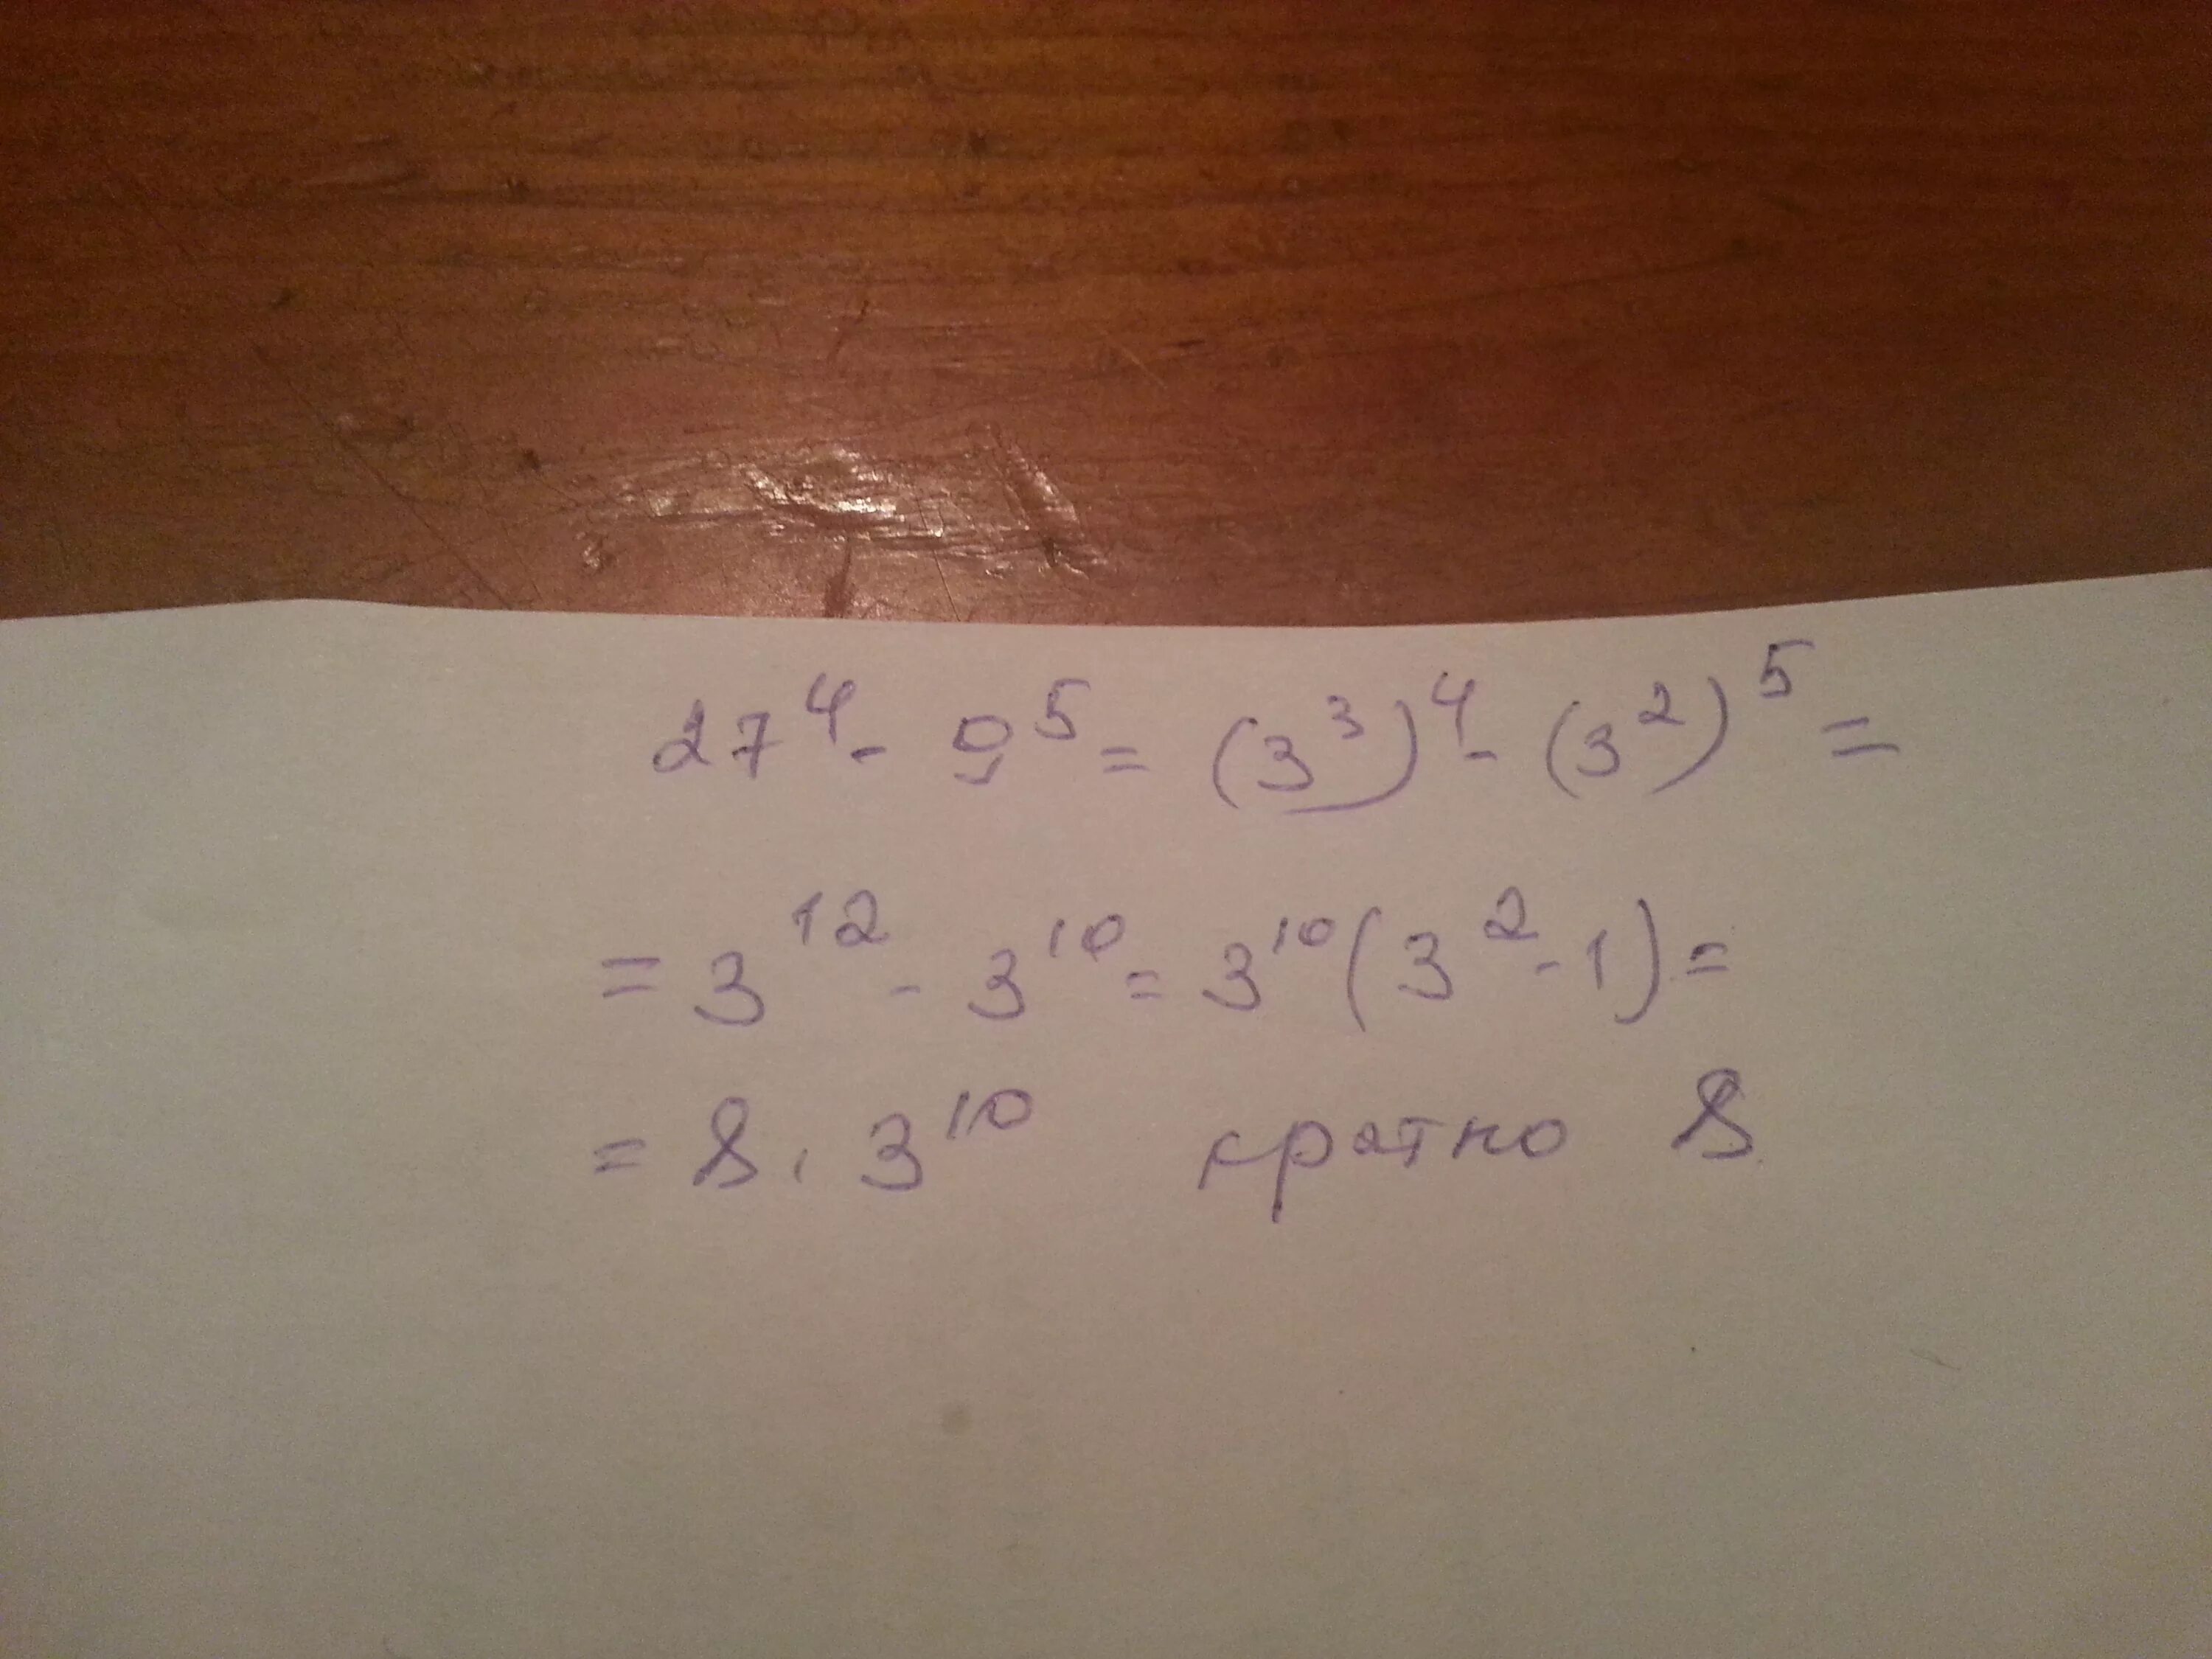 27⁴ - 9⁵ = (3³)⁴ - (3²)⁵ =
= 3¹² - 3¹⁰ = 3¹⁰(3² - 1) =
= 8 · 3¹⁰ кратно 8